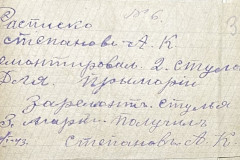 №6. 3
Расписка
Степановъ А. К
емонтировал. 2. стула
Для Прымарии
За ремонт. стулья
получил
Степановъ А. К.